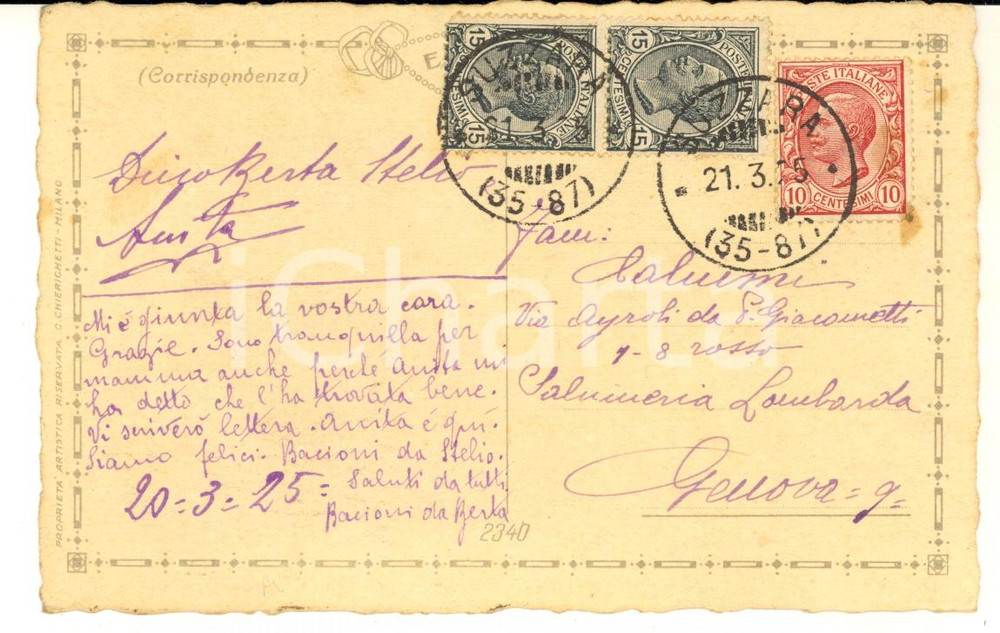 (Corrispondenza)
E
15 15
POSTE ITALIANE
CENTESIMI
15 15
POSTE ITALIANE
CENTESIMI
POSTE ITALIANE
10 CENTESIMI 10
SUZZARA
21.3
(35-87)
SUZZARA
21.3.25
(35-87)
Berta Stelio
Anita
Mi è giunta la vostra cara.
Grazie. Sono tranquilla per
mamma anche perche Anita mi
ha detto che l'ha trovata bene.
Vi scriverò lettera. Anita è qui.
Siamo felici. Bacioni da Stelio.
20=3=25= Saluti da tutti
Bacioni da Berta
Fam:
Via Ayroli da S. Giacometti
7-8 rosso
Salumeria Lombarda
Genova=9=
2340
PROPRIETÀ ARTISTICA RISERVATA C. CHIERICHETTI - MILANO
iCharta